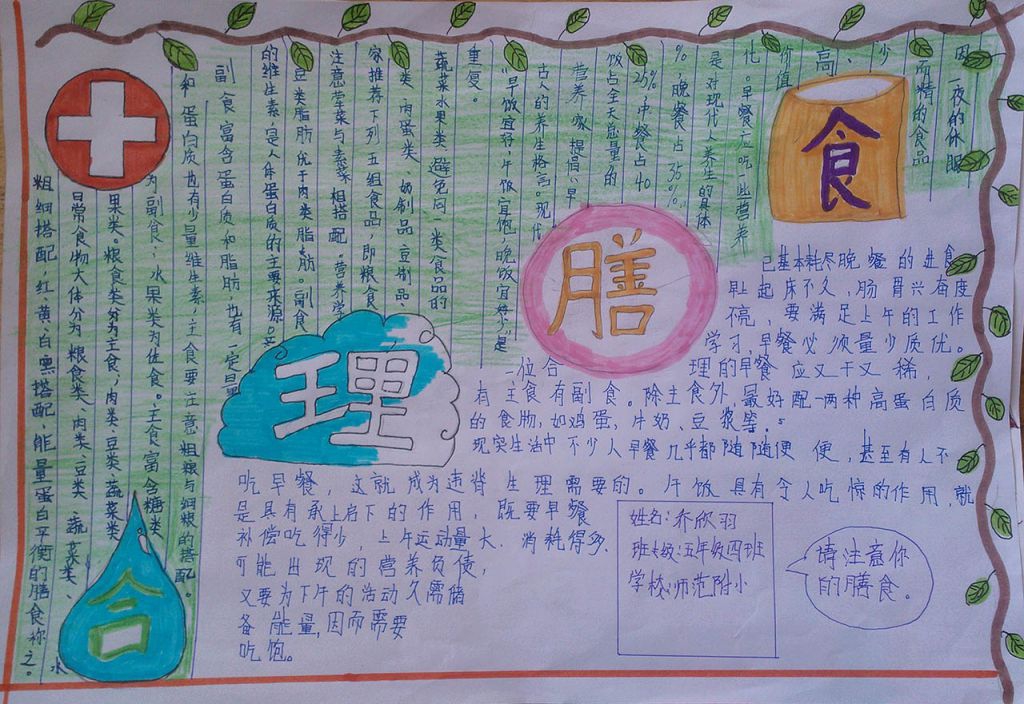 合
理
膳
食
粗细搭配,红、黄、白、黑搭配、能量蛋白平衡的膳食称之。水
日常食物大体分为粮食类、肉类、豆类、蔬菜类、
果类。粮食类分为主食,肉类、豆类、蔬菜类
为副食,水果类为佐食。主食富含糖类
和蛋白质,也有少量维生素,主食要主意粗粮与细粮的搭配。
副食富含蛋白质和脂肪,也有一定量
的维生素,是人体蛋白质的主要来源。
豆类脂肪优于肉类脂肪。副食
注意荤菜与素菜相搭配。营养学
家推荐下列五组食品,即粮食
类、肉蛋类、奶制品、豆制品
蔬菜水果类,避免同一类食品的
重复。
“早饭宜好,午饭宜饱,晚饭宜少”是
古人的养生格言。现代
营养家提倡:早
饭占全天总量的
25%,中餐占40
%,晚餐占35%。
是对现代人养生的具体
化。早餐应吃一些营养
价值
高、
少
而精的食品
因一夜的休眠
已基本耗尽晚餐的进食
早上起床不久,肠胃兴奋度
不高,要满足上午的工作
学习,早餐必须量少质优。
一位合理的早餐应又干又稀,
有主食有副食。除主食外,最好配一两种高蛋白质
的食物,如鸡蛋、牛奶、豆浆等。
现实生活中不少人早餐几乎都随随便便,甚至有人不
吃早餐,这就成为违背生理需要的。午饭具有令人吃惊的作用,就
是具有承上启下的作用,既要早餐
补偿吃得少,上午运动量大,消耗得多,
可能出现的营养负债,
又要为下午的活动久需储
备能量,因而需要
吃饱。
姓名:乔欣羽
班级:五年级四班
学校:师范附小
请注意你
的膳食。